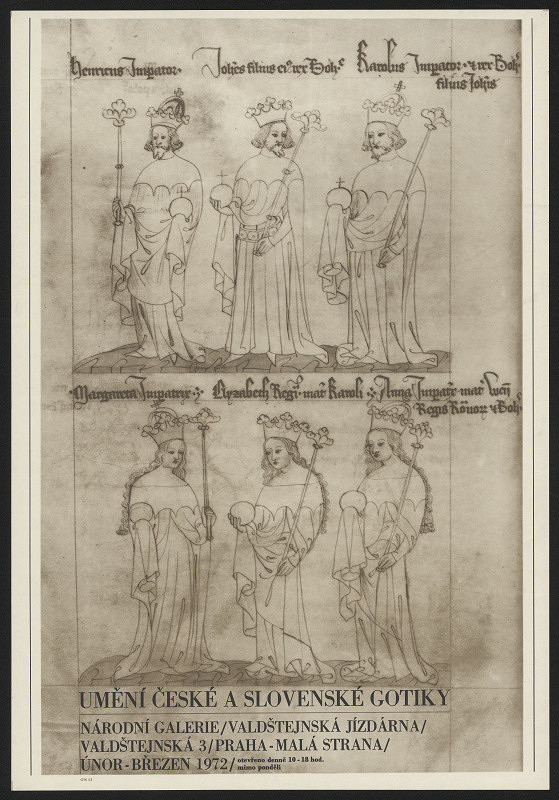 Henricus Imperator
Joh̄es filius ei⁹ rex Boh̄
Karolus Imperator ⁊ rex Boh̄
filius Joh̄is
Margareta Imperatrix
Elyzabeth Reḡ mat̄ Karoli
Anna Imperat̄x mat̄
Regis Rōnorꝝ ⁊ Boh̄
UMĚNÍ ČESKÉ A SLOVENSKÉ GOTIKY
NÁRODNÍ GALERIE/VALDŠTEJNSKÁ JÍZDÁRNA/
VALDŠTEJNSKÁ 3/PRAHA - MALÁ STRANA/
ÚNOR - BŘEZEN 1972/ otevřeno denně 10 - 18 hod.
mimo pondělí